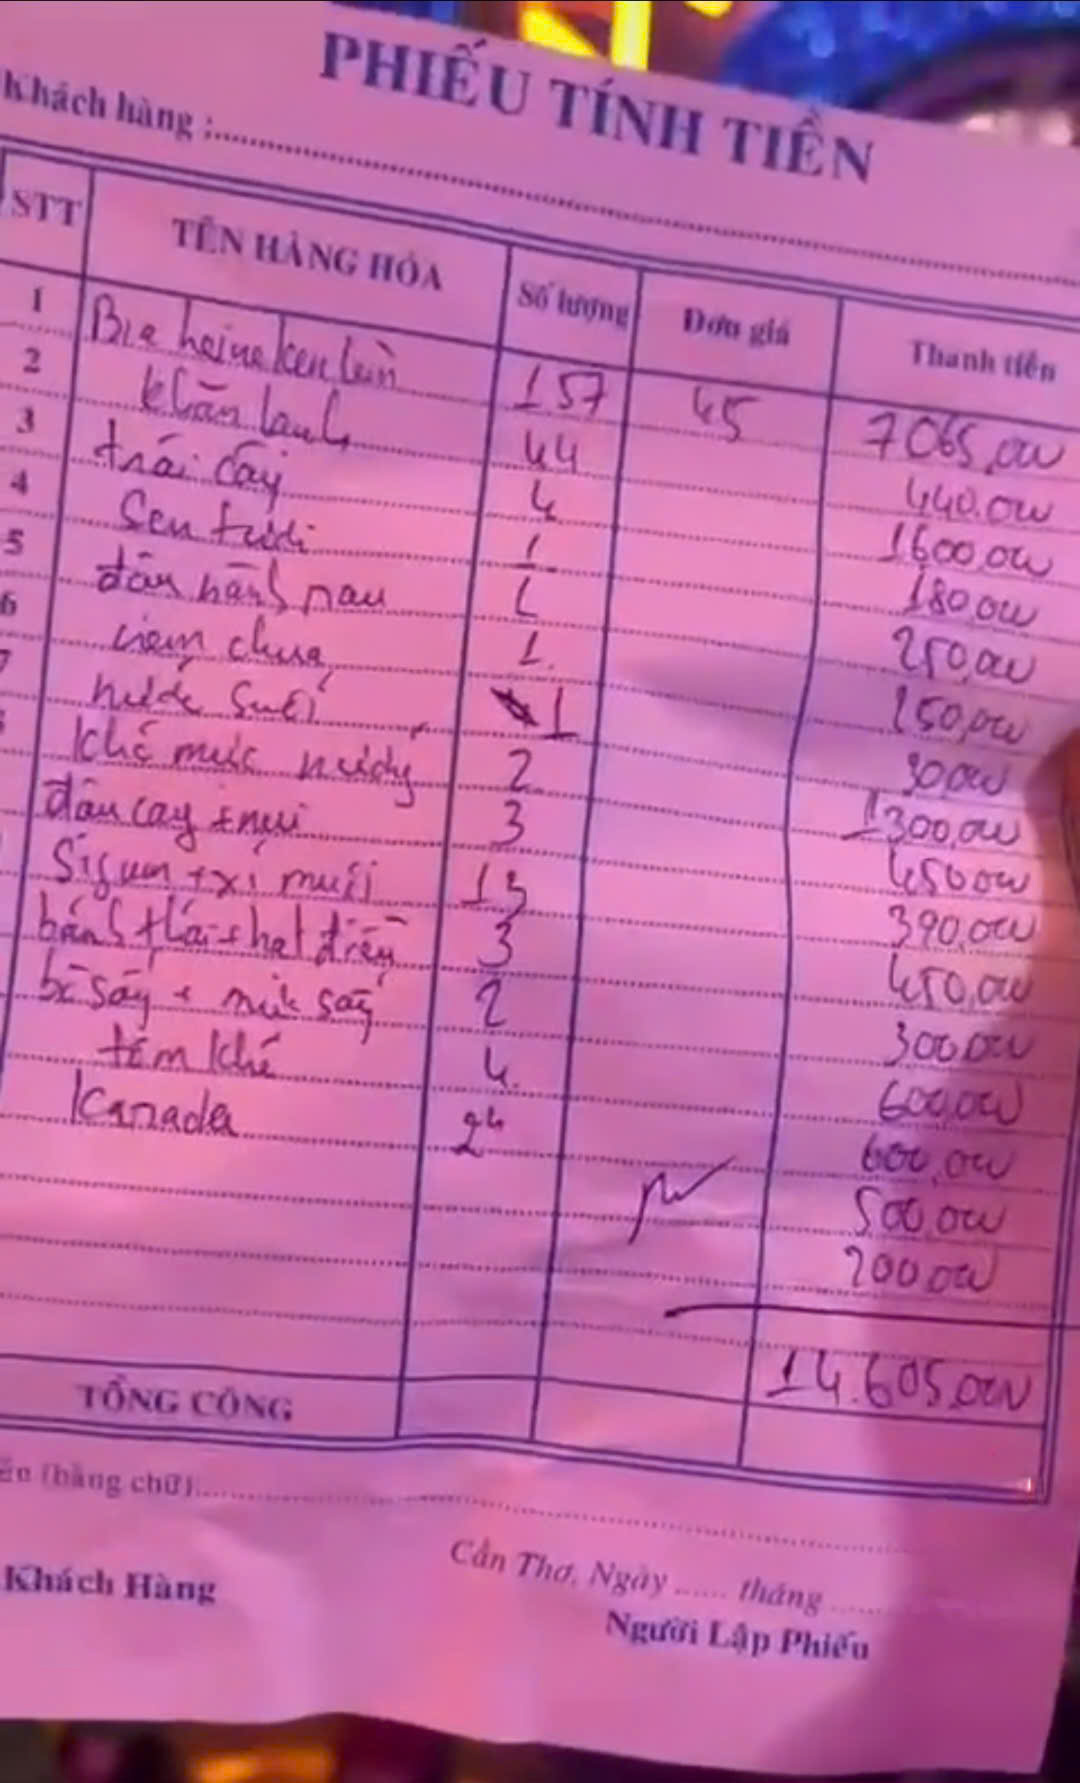 PHIẾU TÍNH TIỀN
Khách hàng :
STT TÊN HÀNG HÓA Số lượng Đơn giá Thanh tiền
1 Bia heineken lùn 157 45 7065,000
2 khăn lạnh 44 440.000
3 trái cây 4 1600,000
4 Sen tươi 1 180,000
5 1 250,000
6 1. 250,000
7 nước suối 1 30,000
Khô mực nướng 2 1300,000
đậu cay + nui 3 450000
+ xí muội 13 390,000
bánh thái + hạt điều 3 450,000
bò sấy + mít sấy 2 300000
tôm khô 4. 600,000
Kanada 24 600,000
500,000
200,000
14.605,000
TỔNG CỘNG
(bằng chữ)
Cần Thơ, Ngày ...... tháng
Khách Hàng Người Lập Phiếu